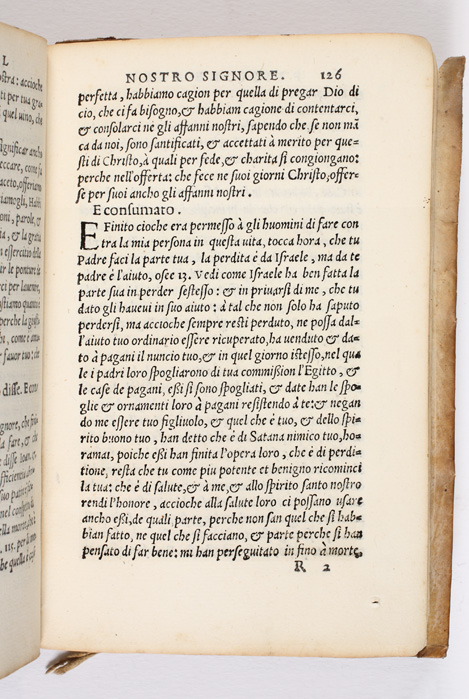 L
ostra: accioche
ti per tua gra
quel uino, che
significar anche
peccare, come sa
aceto, offeriamo
iamogli, Habbi
oni, parole, &
a, & la gratia
per la
far
favor tuo: che
o disse. E con
NOSTRO SIGNORE. 126
perfetta, habbiamo cagion per quella di pregar Dio di
cio, che ci fa bisogno, & habbiam cagione di contentarci,
& consolarci ne gli affanni nostri, sapendo che se non mã
ca da noi, sono santificati, & accettati à merito per que-
sti di Christo, à quali per fede, & charita si congiongano:
perche nell'offerta: che fece ne suoi giorni Christo, offer-
se per suoi ancho gli affanni nostri.
E consumato.
E Finito cioche era permesso à gli huomini di fare con
tra la mia persona in questa uita, tocca hora, che tu
Padre faci la parte tua, la perdita è da Israele, ma da te
padre è l'aiuto, osee 13. Vedi come Israele ha ben fatta la
parte sua in perder sestesso: & in priuarsi di me, che tu
dato gli haueui in suo aiuto: à tal che non solo ha saputo
perdersi, ma accioche sempre resti perduto, ne possa dal-
l'aiuto tuo ordinario essere ricuperato, ha uenduto & da-
to à pagani il nuncio tuo, & in quel giorno istesso, nel qua
le i padri loro spogliarono di tua commißion l'Egitto, &
le case de pagani, eßi si sono spogliati, & date han le spo-
glie & ornamenti loro à pagani resistendo à te: & negan
do me essere tuo figliuolo, & quel che è tuo, & dello spi-
rito buono tuo, han detto che è di Satana nimico tuo, ho-
ramai, poiche eßi han finita l'opera loro, che è di perdi-
tione, resta che tu come piu potente et benigno ricominci
la tua: che è di salute, & à me, & allo spirito santo nostro
rendi l'honore, accioche alla salute loro ci possano usare
ancho eßi, de quali parte, perche non san quel che si hab-
bian fatto, ne quel che si facciano, & parte perche si han
pensato di far bene: mi han perseguitato in fino à morte,
R 2